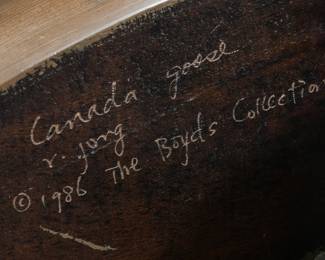 Canada goose
r. jong
© 1986 The Boyds Collection